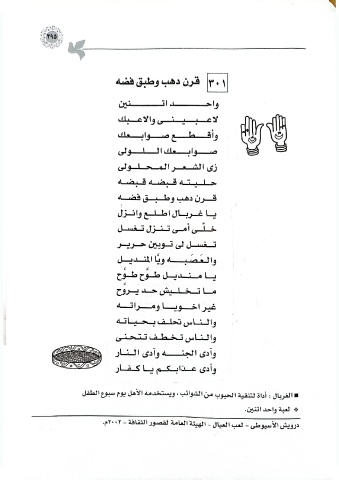 ٢٩٥
٣٠١ قرن دهب وطبق فضه
واحد اتنين
لاعبينى والاعبك
وأقطع صوابعك
صوابعك اللولى
زى الشعر المحلولى
حليته قبضه قبضه
قرن دهب وطبق فضه
يا غربال اطلع وانزل
خلّى أمى تنزل تغسل
تغسل لى توبين حرير
والعَصَبه ويّا المنديل
يا منديل طوَّح طوَّح
ما تخليش حد يروَّح
غير اخويا ومراته
والناس تحلف بحياته
والناس تخطف تتحنى
وآدى الجنه وآدى النار
وآدى عذابكم يا كفار
■ الغربال : أداة لتنقية الحبوب من الشوائب ، ويستخدمه الأهل يوم سبوع الطفل
* لعبة واحد اتنين.
درويش الأسيوطى - لعب العيال - الهيئة العامة لقصور الثقافة - ٢٠٠٢م.